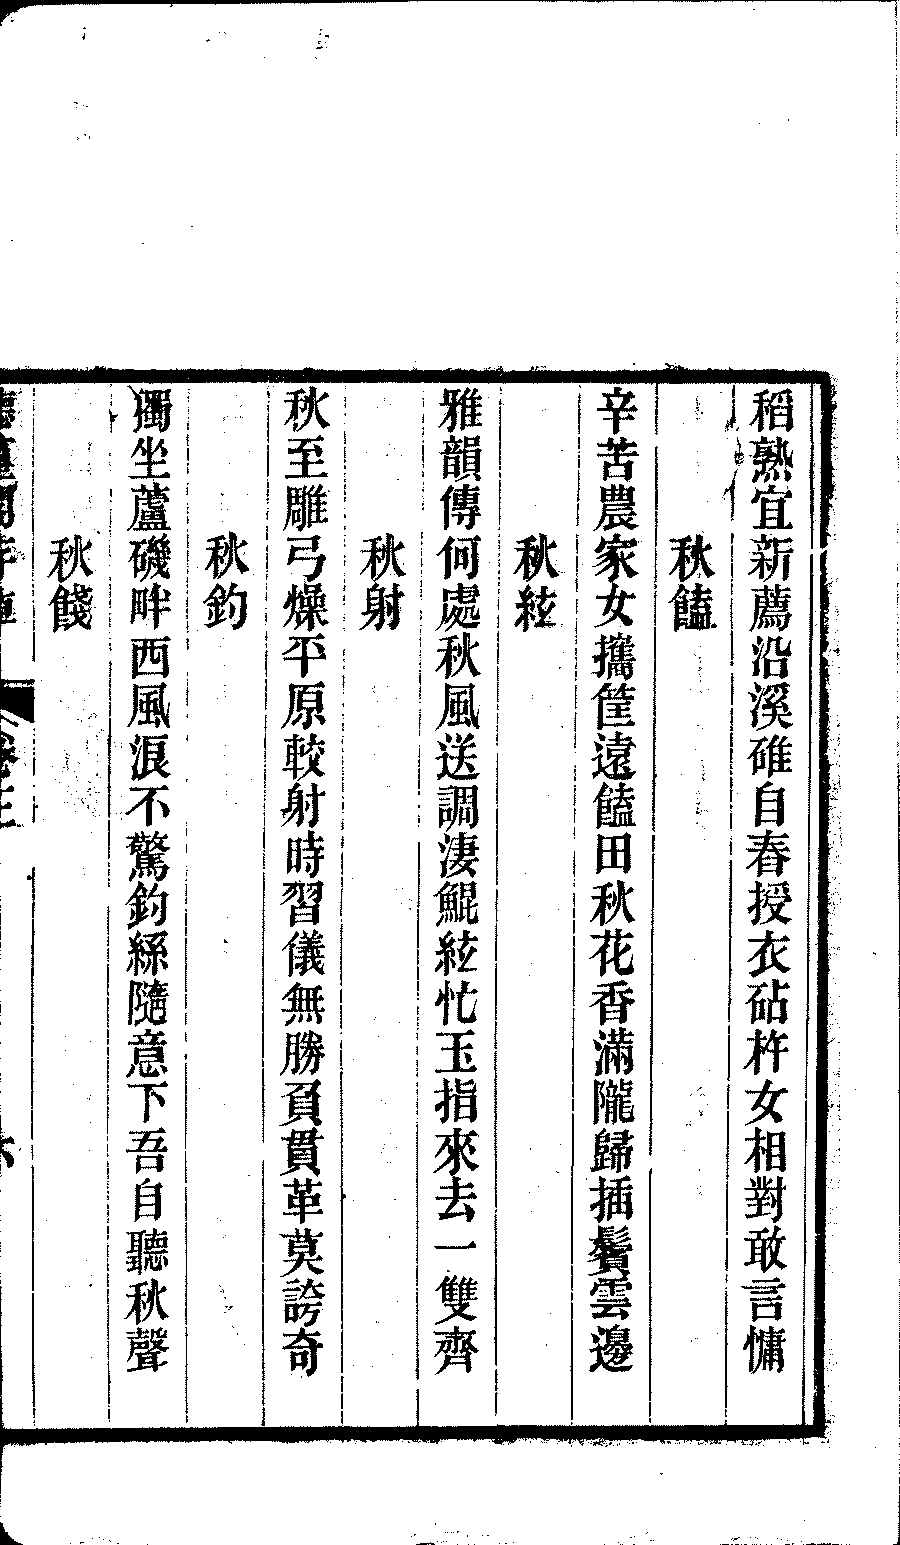 稻熟宜新薦沿溪碓自舂授衣砧杵女相對敢言慵
秋饁
辛苦農家女攜筐遠饁田秋花香滿隴歸插鬢雲邊
秋絃
雅韻傳何處秋風送調淒鯤絃忙玉指來去一雙齊
秋射
秋至雕弓燥平原較射時習儀無勝負貫革莫誇奇
秋釣
獨坐蘆磯畔西風浪不驚釣絲隨意下吾自聽秋聲
秋餞